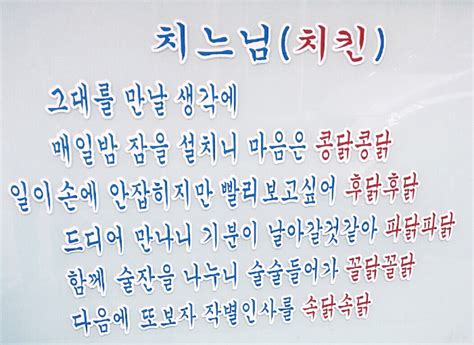 치느님(치킨)
그대를 만날 생각에
매일밤 잠을 설치니 마음은 콩닭콩닭
일이 손에 안잡히지만 빨리보고싶어 후닭후닭
드디어 만나니 기분이 날아갈것같아 파닭파닭
함께 술잔을 나누니 술술들어가 꼴닭꼴닭
다음에 또보자 작별인사를 속닭속닭